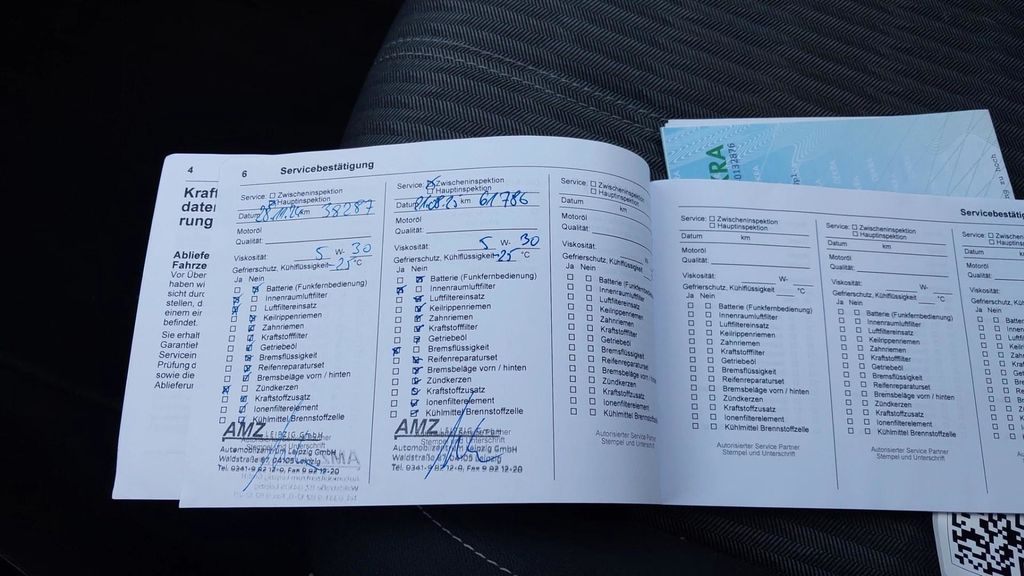 4
Kraft
daten
rung
Abliefe
Fahrze
Vor Über
haben wi
sicht durc
stellen, d
einem eir
befindet.
Sie erhalt
Garantief
Servicein
Prüfung d
sowie die
Ablieferu
6 Servicebestätigung
Service: Zwischeninspektion
Hauptinspektion
Datum 28.11.24 km 38287
Motoröl
Qualität:
Viskosität: 5 W- 30
Gefrierschutz, Kühlflüssigkeit -25 °C
Ja Nein
Batterie (Funkfernbedienung)
Innenraumluftfilter
Luftfiltereinsatz
Keilrippenriemen
Zahnriemen
Kraftstofffilter
Getriebeöl
Bremsflüssigkeit
Reifenreparaturset
Bremsbeläge vorn / hinten
Zündkerzen
Kraftstoffzusatz
Ionenfilterelement
Kühlmittel Brennstoffzelle
AMZ LEIPZIG GmbH
Stempel und Unterschrift
Automobilzentrum Leipzig GmbH
Waldstraße 67, 04105 Leipzig
Tel. 0341-9 82 12-0, Fax 9 82 12-20
Service: Zwischeninspektion
Hauptinspektion
Datum km 61786
Motoröl
Qualität:
Viskosität: 5 W- 30
Gefrierschutz, Kühlflüssigkeit -25 °C
Ja Nein
Batterie (Funkfernbedienung)
Innenraumluftfilter
Luftfiltereinsatz
Keilrippenriemen
Zahnriemen
Kraftstofffilter
Getriebeöl
Bremsflüssigkeit
Reifenreparaturset
Bremsbeläge vorn / hinten
Zündkerzen
Kraftstoffzusatz
Ionenfilterelement
Kühlmittel Brennstoffzelle
AMZ LEIPZIG GmbH
Stempel und Unterschrift
Automobilzentrum Leipzig GmbH
Waldstraße 67, 04105 Leipzig
Tel. 0341-9 82 12-0, Fax 9 82 12-20
Service: Zwischeninspektion
Hauptinspektion
Datum km
Motoröl
Qualität:
Viskosität:
Gefrierschutz, Kühlflüssigkeit
Ja Nein
Batterie (Funkfernbed
Innenraumluftfilter
Luftfiltereinsatz
Keilrippenriemen
Zahnriemen
Kraftstofffilter
Getriebeöl
Bremsflüssigkeit
Reifenreparaturset
Bremsbeläge vorn /
Zündkerzen
Kraftstoffzusatz
Ionenfilterelement
Kühlmittel Brennst
Autorisierter Service Partner
Stempel und Unterschrift
Servicebestätig
Service: Zwischeninspektion
Hauptinspektion
Datum km
Motoröl
Qualität:
Viskosität: W-
Gefrierschutz, Kühlflüssigkeit °C
Ja Nein
Batterie (Funkfernbedienung)
Innenraumluftfilter
Luftfiltereinsatz
Keilrippenriemen
Zahnriemen
Kraftstofffilter
Getriebeöl
Bremsflüssigkeit
Reifenreparaturset
Bremsbeläge vorn / hinten
Zündkerzen
Kraftstoffzusatz
Ionenfilterelement
Kühlmittel Brennstoffzelle
Autorisierter Service Partner
Stempel und Unterschrift
Service: Zwischeninspektion
Hauptinspektion
Datum km
Motoröl
Qualität:
Viskosität: W-
Gefrierschutz, Kühlflüssigkeit °C
Ja Nein
Batterie (Funkfernbedienung)
Innenraumluftfilter
Luftfiltereinsatz
Keilrippenriemen
Zahnriemen
Kraftstofffilter
Getriebeöl
Bremsflüssigkeit
Reifenreparaturset
Bremsbeläge vorn / hinten
Zündkerzen
Kraftstoffzusatz
Ionenfilterelement
Kühlmittel Brennstoffzelle
Autorisierter Service Partner
Stempel und Unterschrift
Service:
Datum
Motoröl
Qualität:
Viskosität:
Gefrierschutz
Ja Nein
KRA
0132876